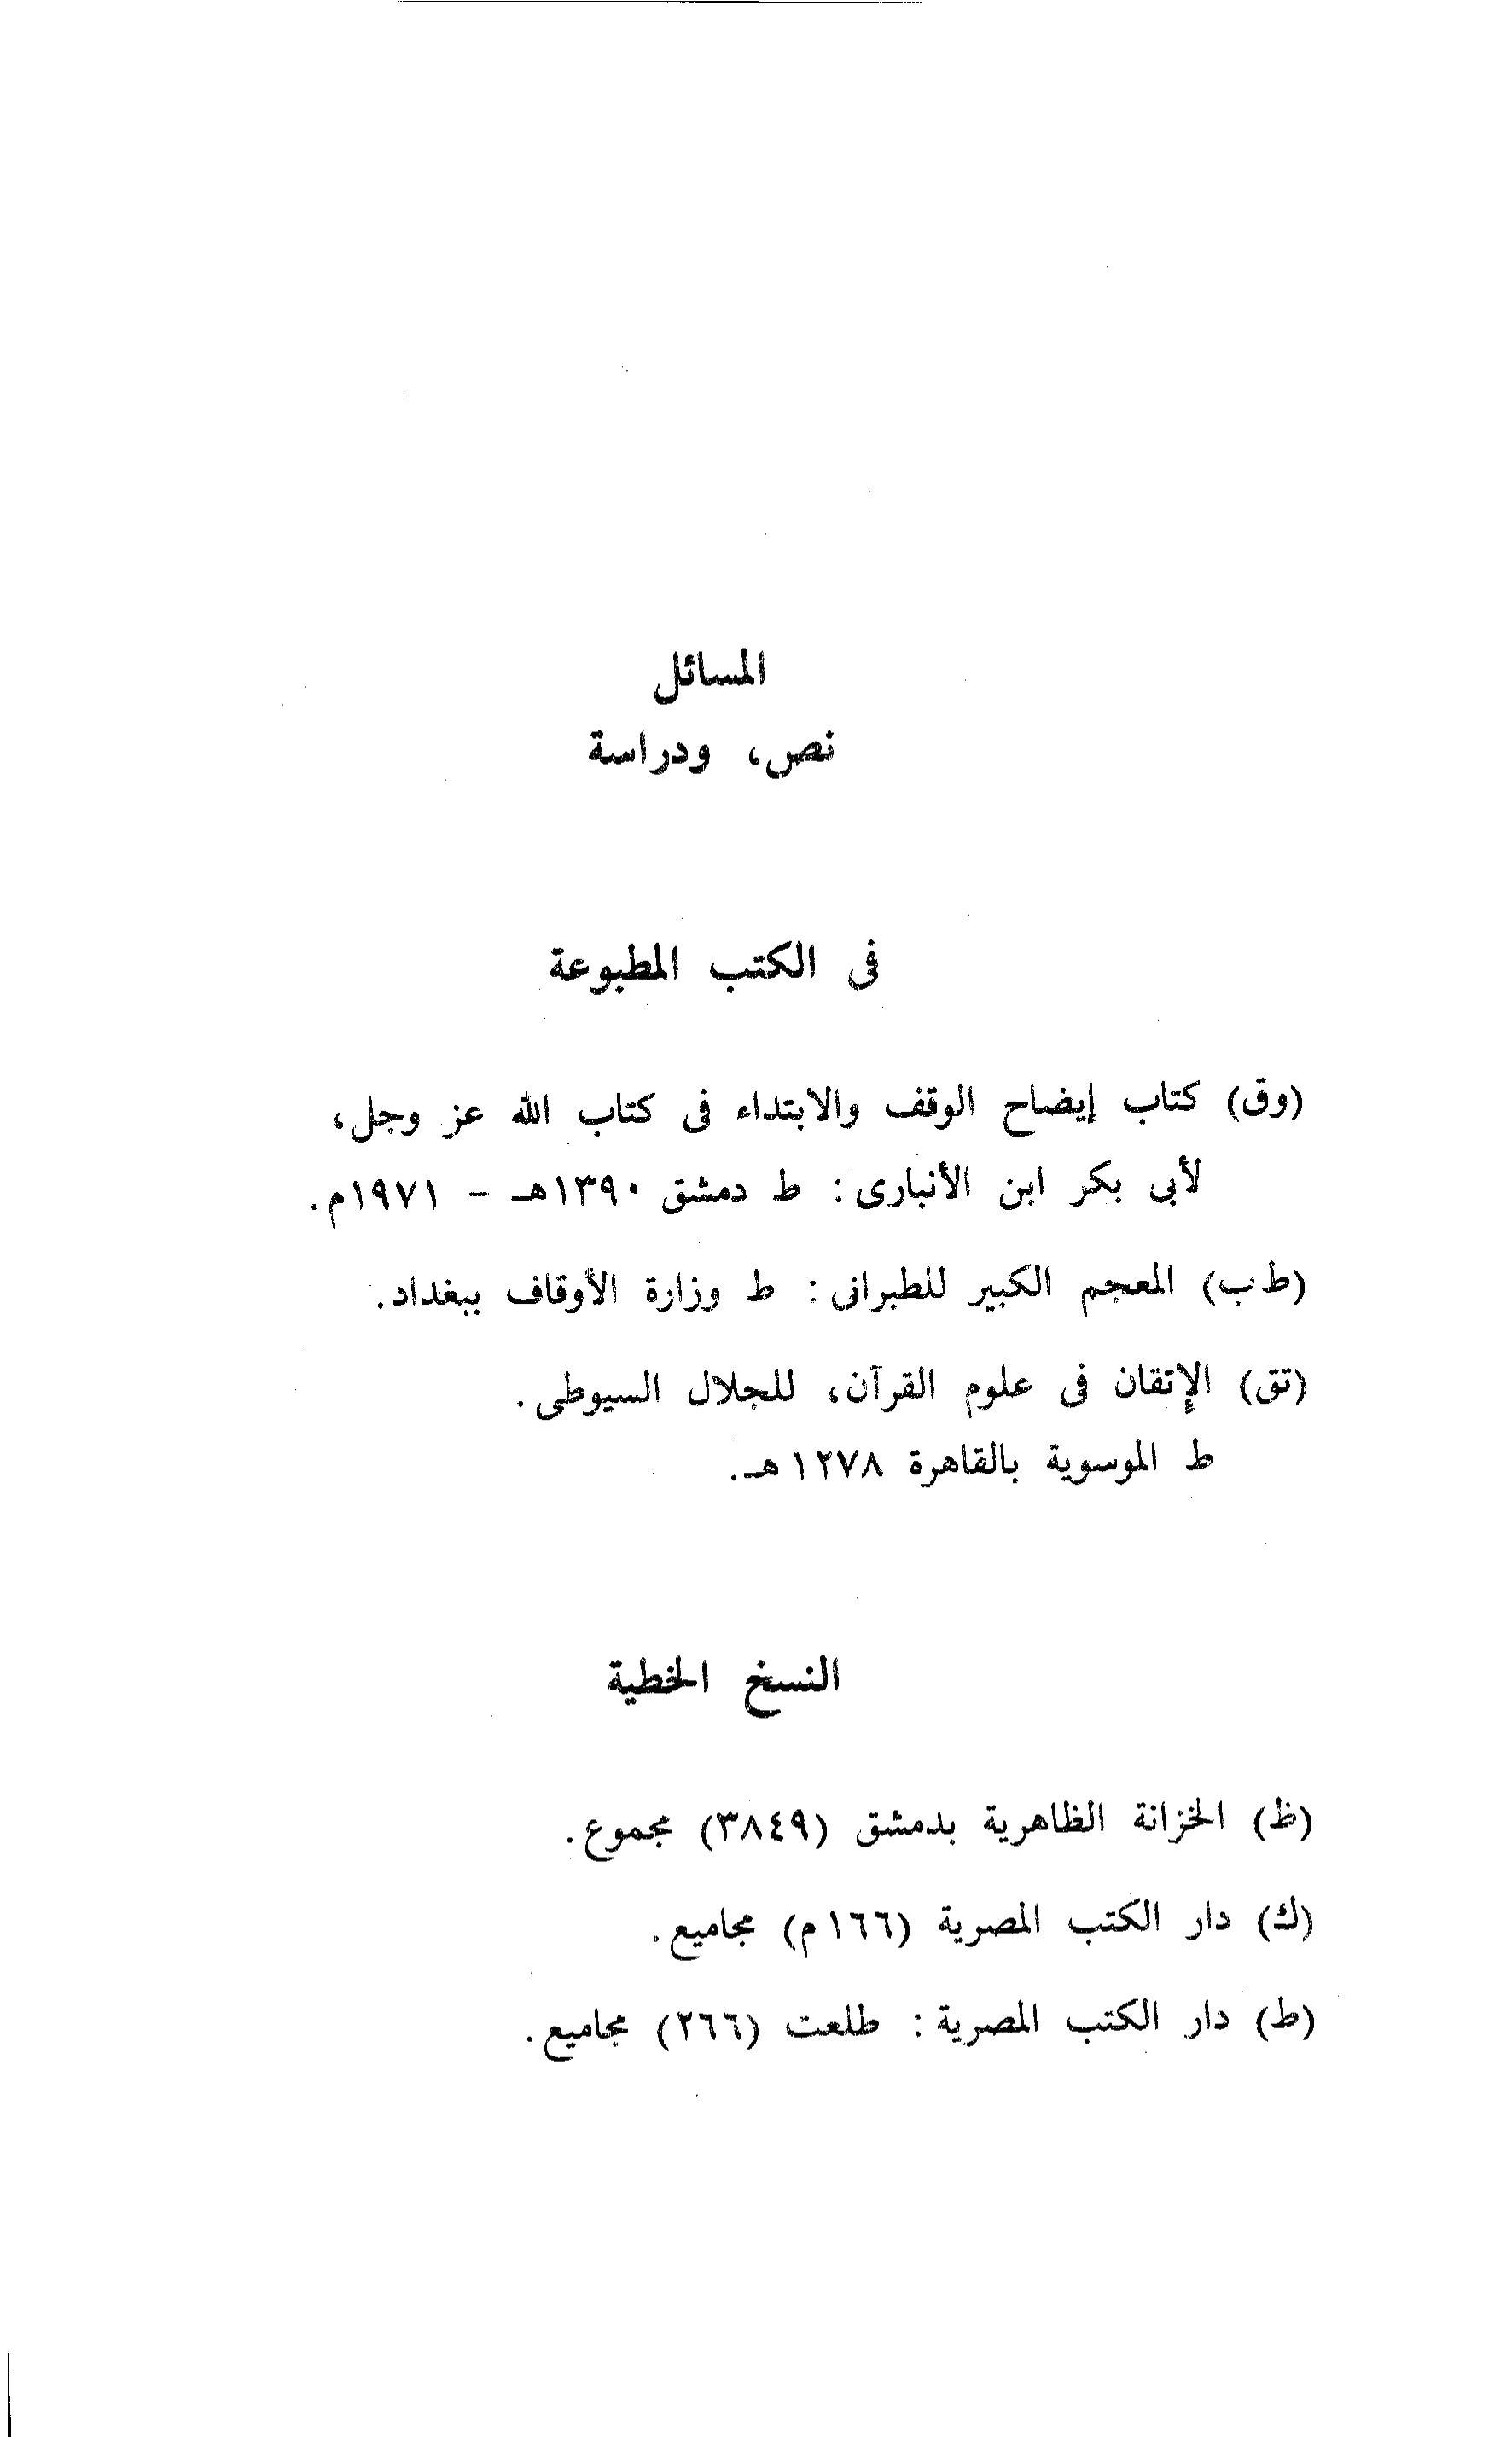 المسائل
نص، ودراسة
فى الكتب المطبوعة
(وق) كتاب إيضاح الوقف والابتداء فى كتاب الله عز وجل،
لأبى بكر ابن الأنبارى: ط دمشق ١٣٩٠هـ - ١٩٧١م.
(طب) المعجم الكبير للطبرانى: ط وزارة الأوقاف ببغداد.
(تق) الإتقان فى علوم القرآن، للجلال السيوطى.
ط الموسوية بالقاهرة ١٢٧٨هـ.
النسخ الخطية
(ظ) الخزانة الظاهرية بدمشق (٣٨٤٩) مجموع.
(ك) دار الكتب المصرية (١٦٦م) مجاميع.
(ط) دار الكتب المصرية: طلعت (٢٦٦) مجاميع.